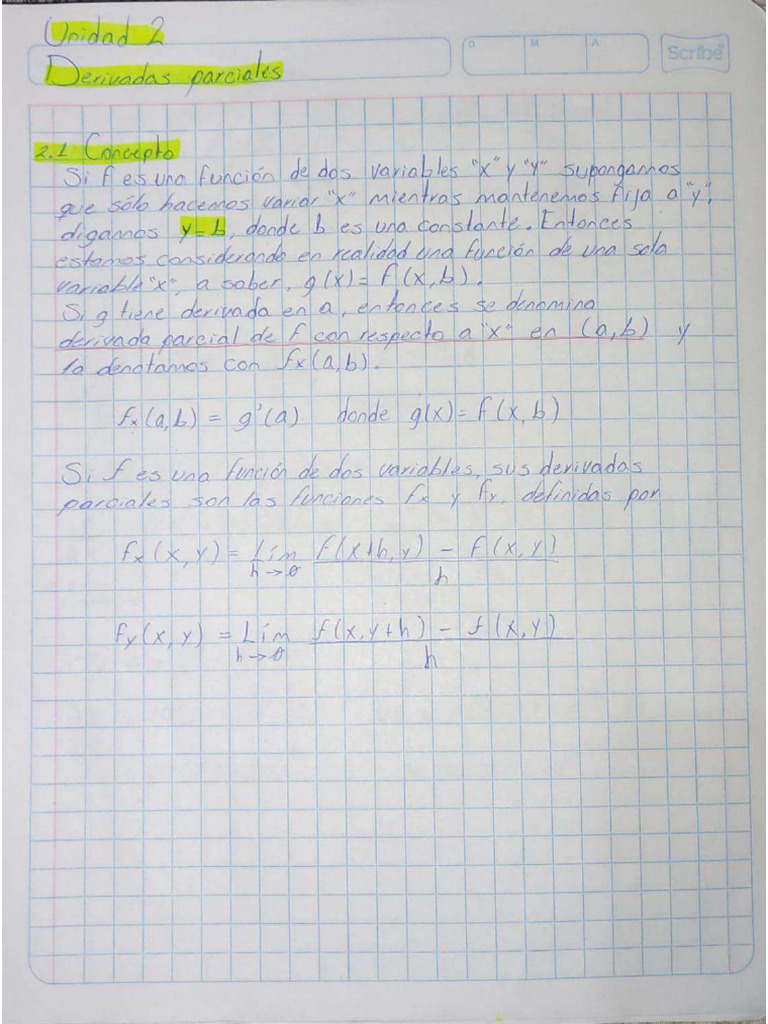 Unidad 2
D M A
Scribe
Derivadas parciales
2.1 Concepto
Si f es una función de dos variables "x" y "y" supongamos
que sólo hacemos variar "x" mientras mantenemos fija a "y",
digamos y=b, donde b es una constante. Entonces
estamos considerando en realidad una función de una sola
variable "x", a saber, g(x)= f(x,b).
Si g tiene derivada en a, entonces se denomina
derivada parcial de f con respecto a "x" en (a,b) y
la denotamos con fx(a,b).
fx(a,b) = g'(a) donde g(x)= f(x,b)
Si f es una función de dos variables, sus derivadas
parciales son las funciones fx y fy, definidas por
fx(x,y) = Lim f(x+h,y) - f(x,y)
h→0 h
fy(x,y) = Lim f(x,y+h) - f(x,y)
h→0 h